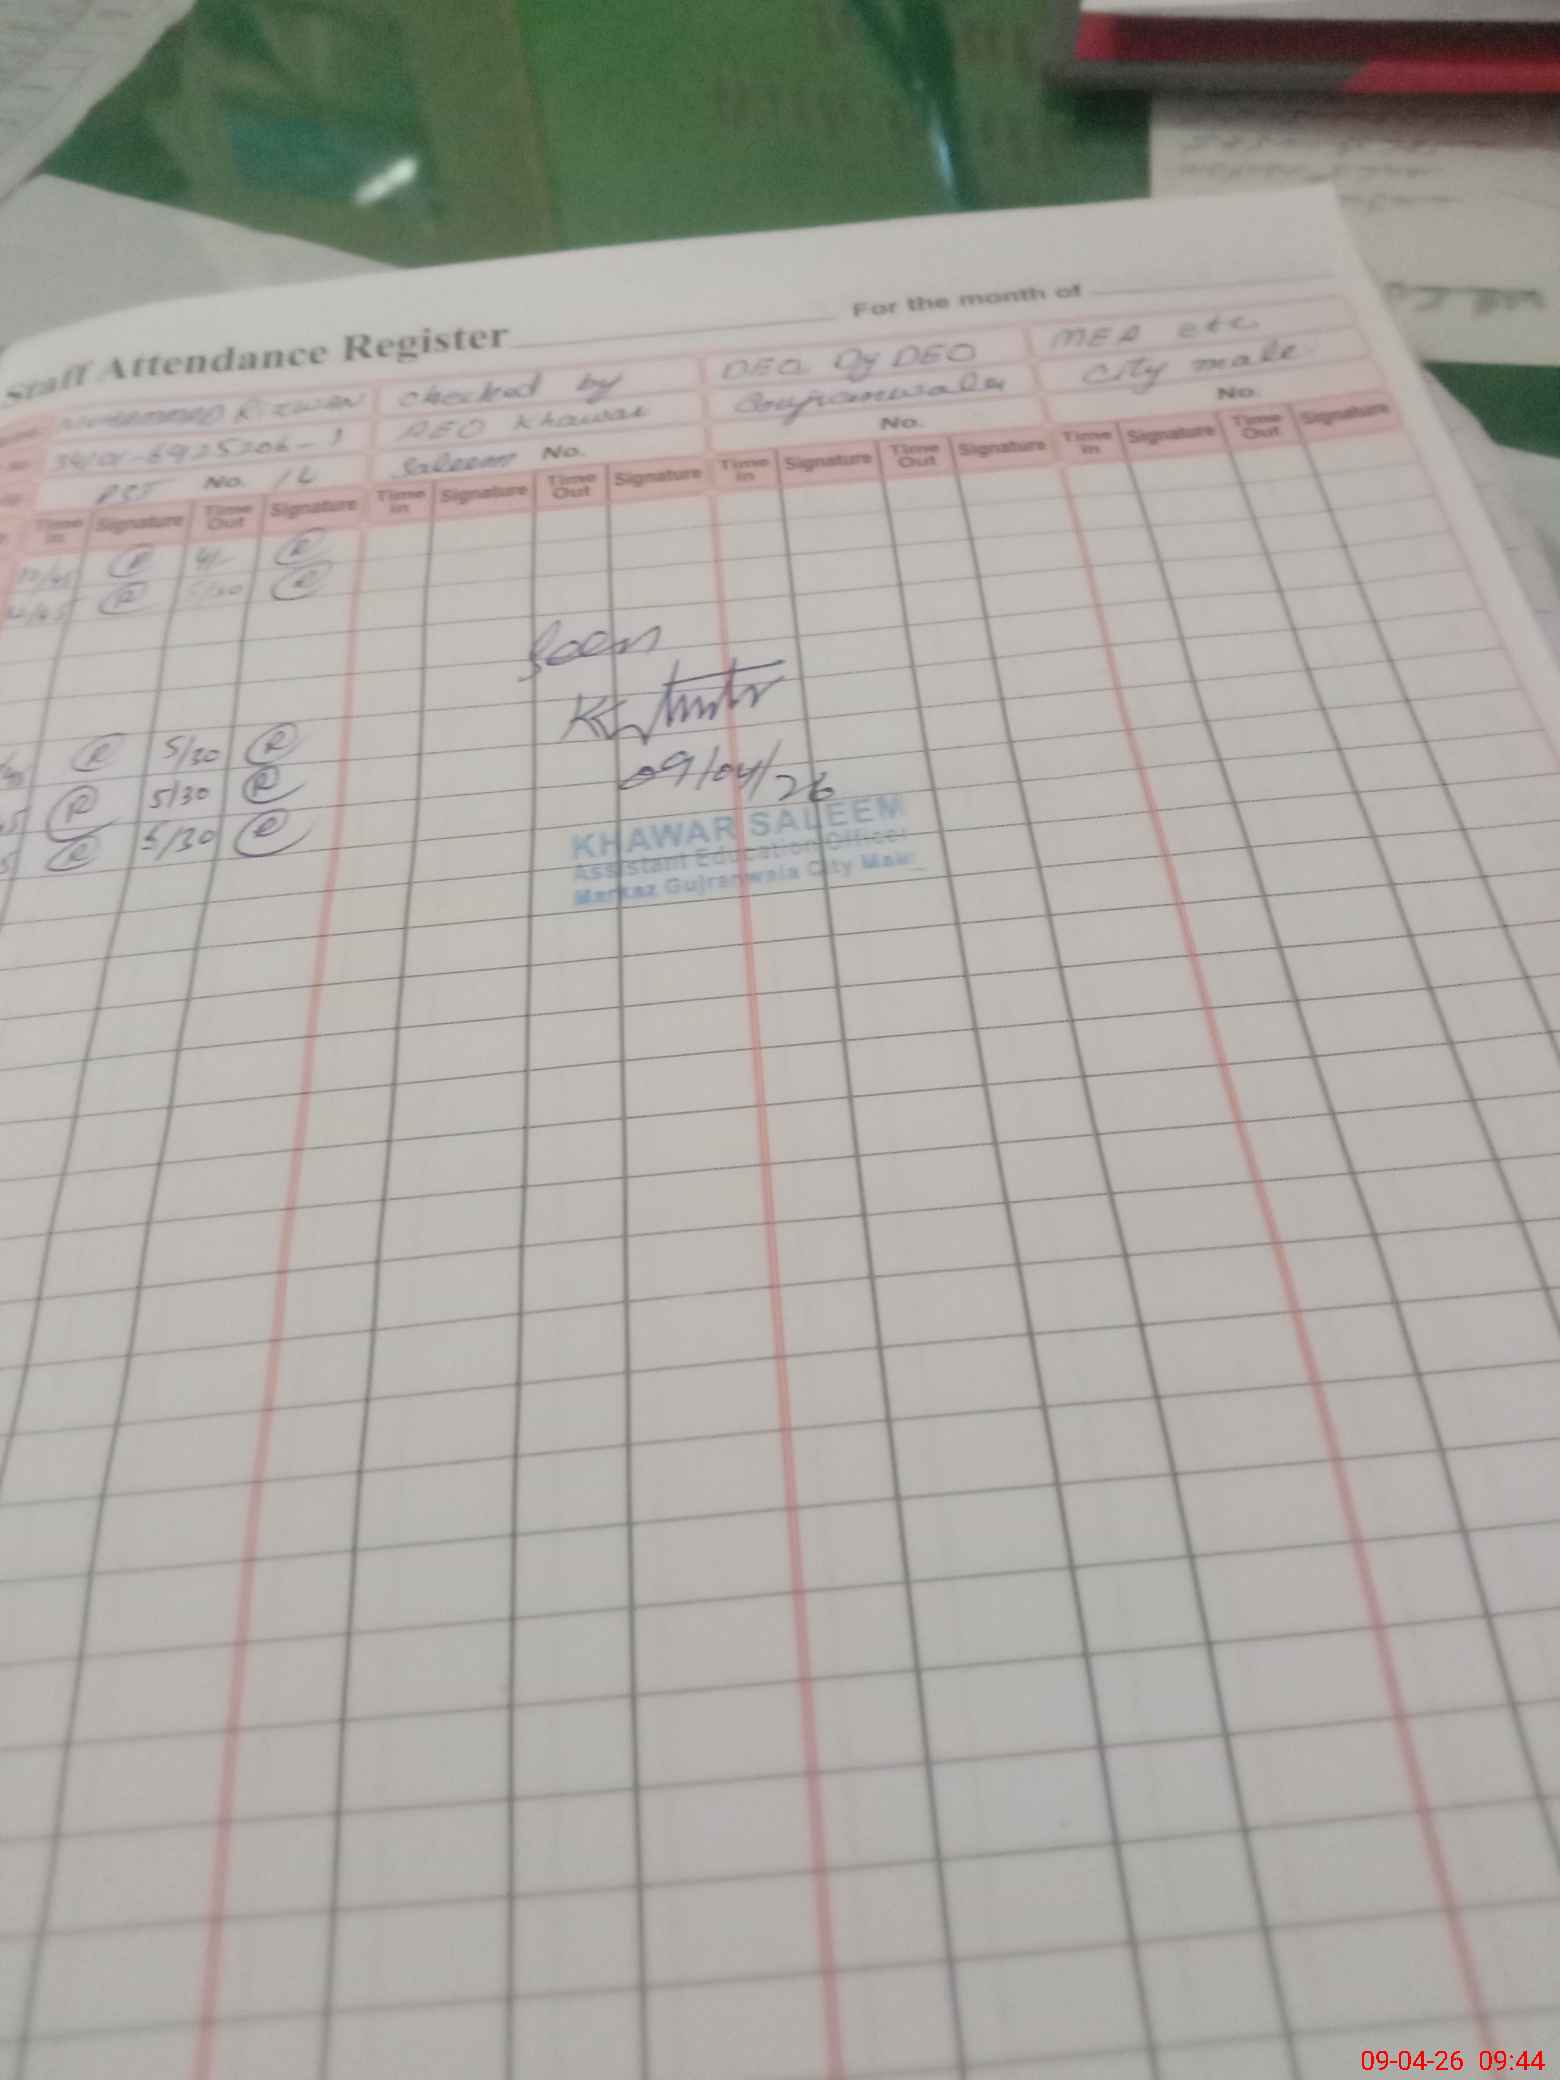 Staff Attendance Register For the month of
MUHAMMAD RIZWAN checked by DEO Dy DEO MEA etc
34101-6925206-1 AEO Khawar Gujranwala City male
PST No. 14 Saleem No. No. No.
Time In Signature Time Out Signature Time In Signature Time Out Signature Time In Signature Time Out Signature Time In Signature Time Out Signature
R 4/- R
R 5/30 R
Seen
09/04/26
R 5/30 R
R 5/30 R
R 5/30 R
KHAWAR SALEEM
Assistant Education Officer
Markaz Gujranwala City Male
09-04-26 09:44